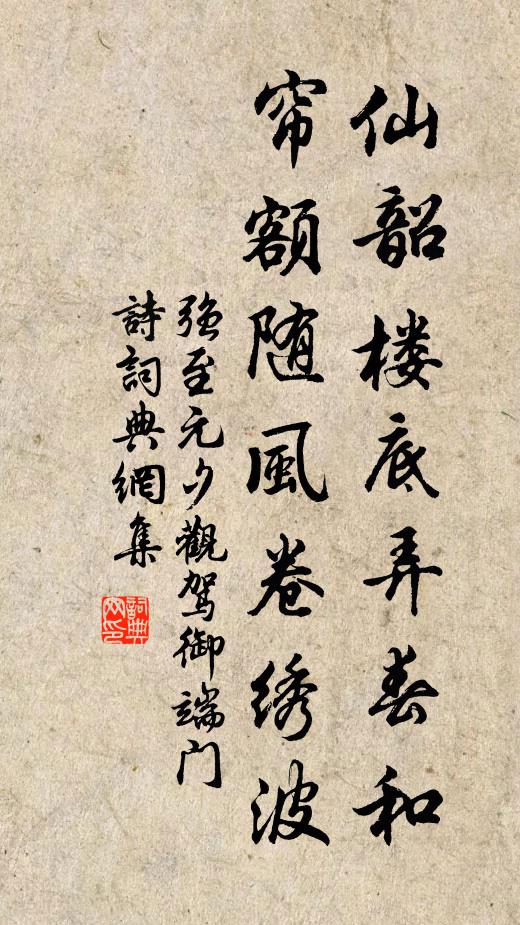 仙韶楼底弄春和
帘额随風卷绣波
强至元夕觀驾御端门
詩詞典網集
詞典
网印